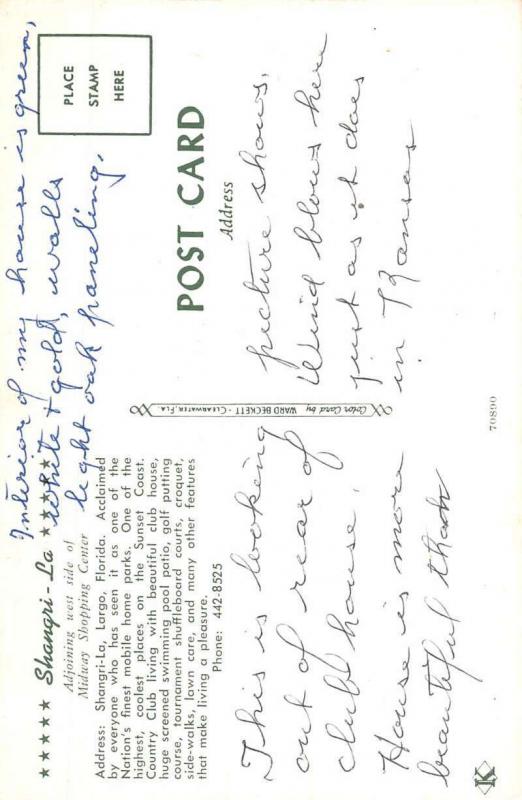 Interior of my house is green,
white & gold, walls
light oak paneling.
★ ★ ★ ★ ★ Shangri-La ★ ★ ★ ★ ★
Adjoining west side of
Midway Shopping Center
Address: Shangri-La, Largo, Florida. Acclaimed
by everyone who has seen it as one of the
Nation's finest mobile home parks. One of the
highest, coolest places on the Sunset Coast.
Country Club living with beautiful club house,
huge screened swimming pool patio, golf putting
course, tournament shuffleboard courts, croquet,
side-walks, lawn care, and many other features
that make living a pleasure.
Phone: 442-8525
This is looking
out of rear of
club house.
House is more
beautiful than
Color Card by WARD BECKETT - CLEARWATER, FLA.
PLACE
STAMP
HERE
POST CARD
Address
picture shows.
Wind blows here
just as it does
in Kansas
K
70890